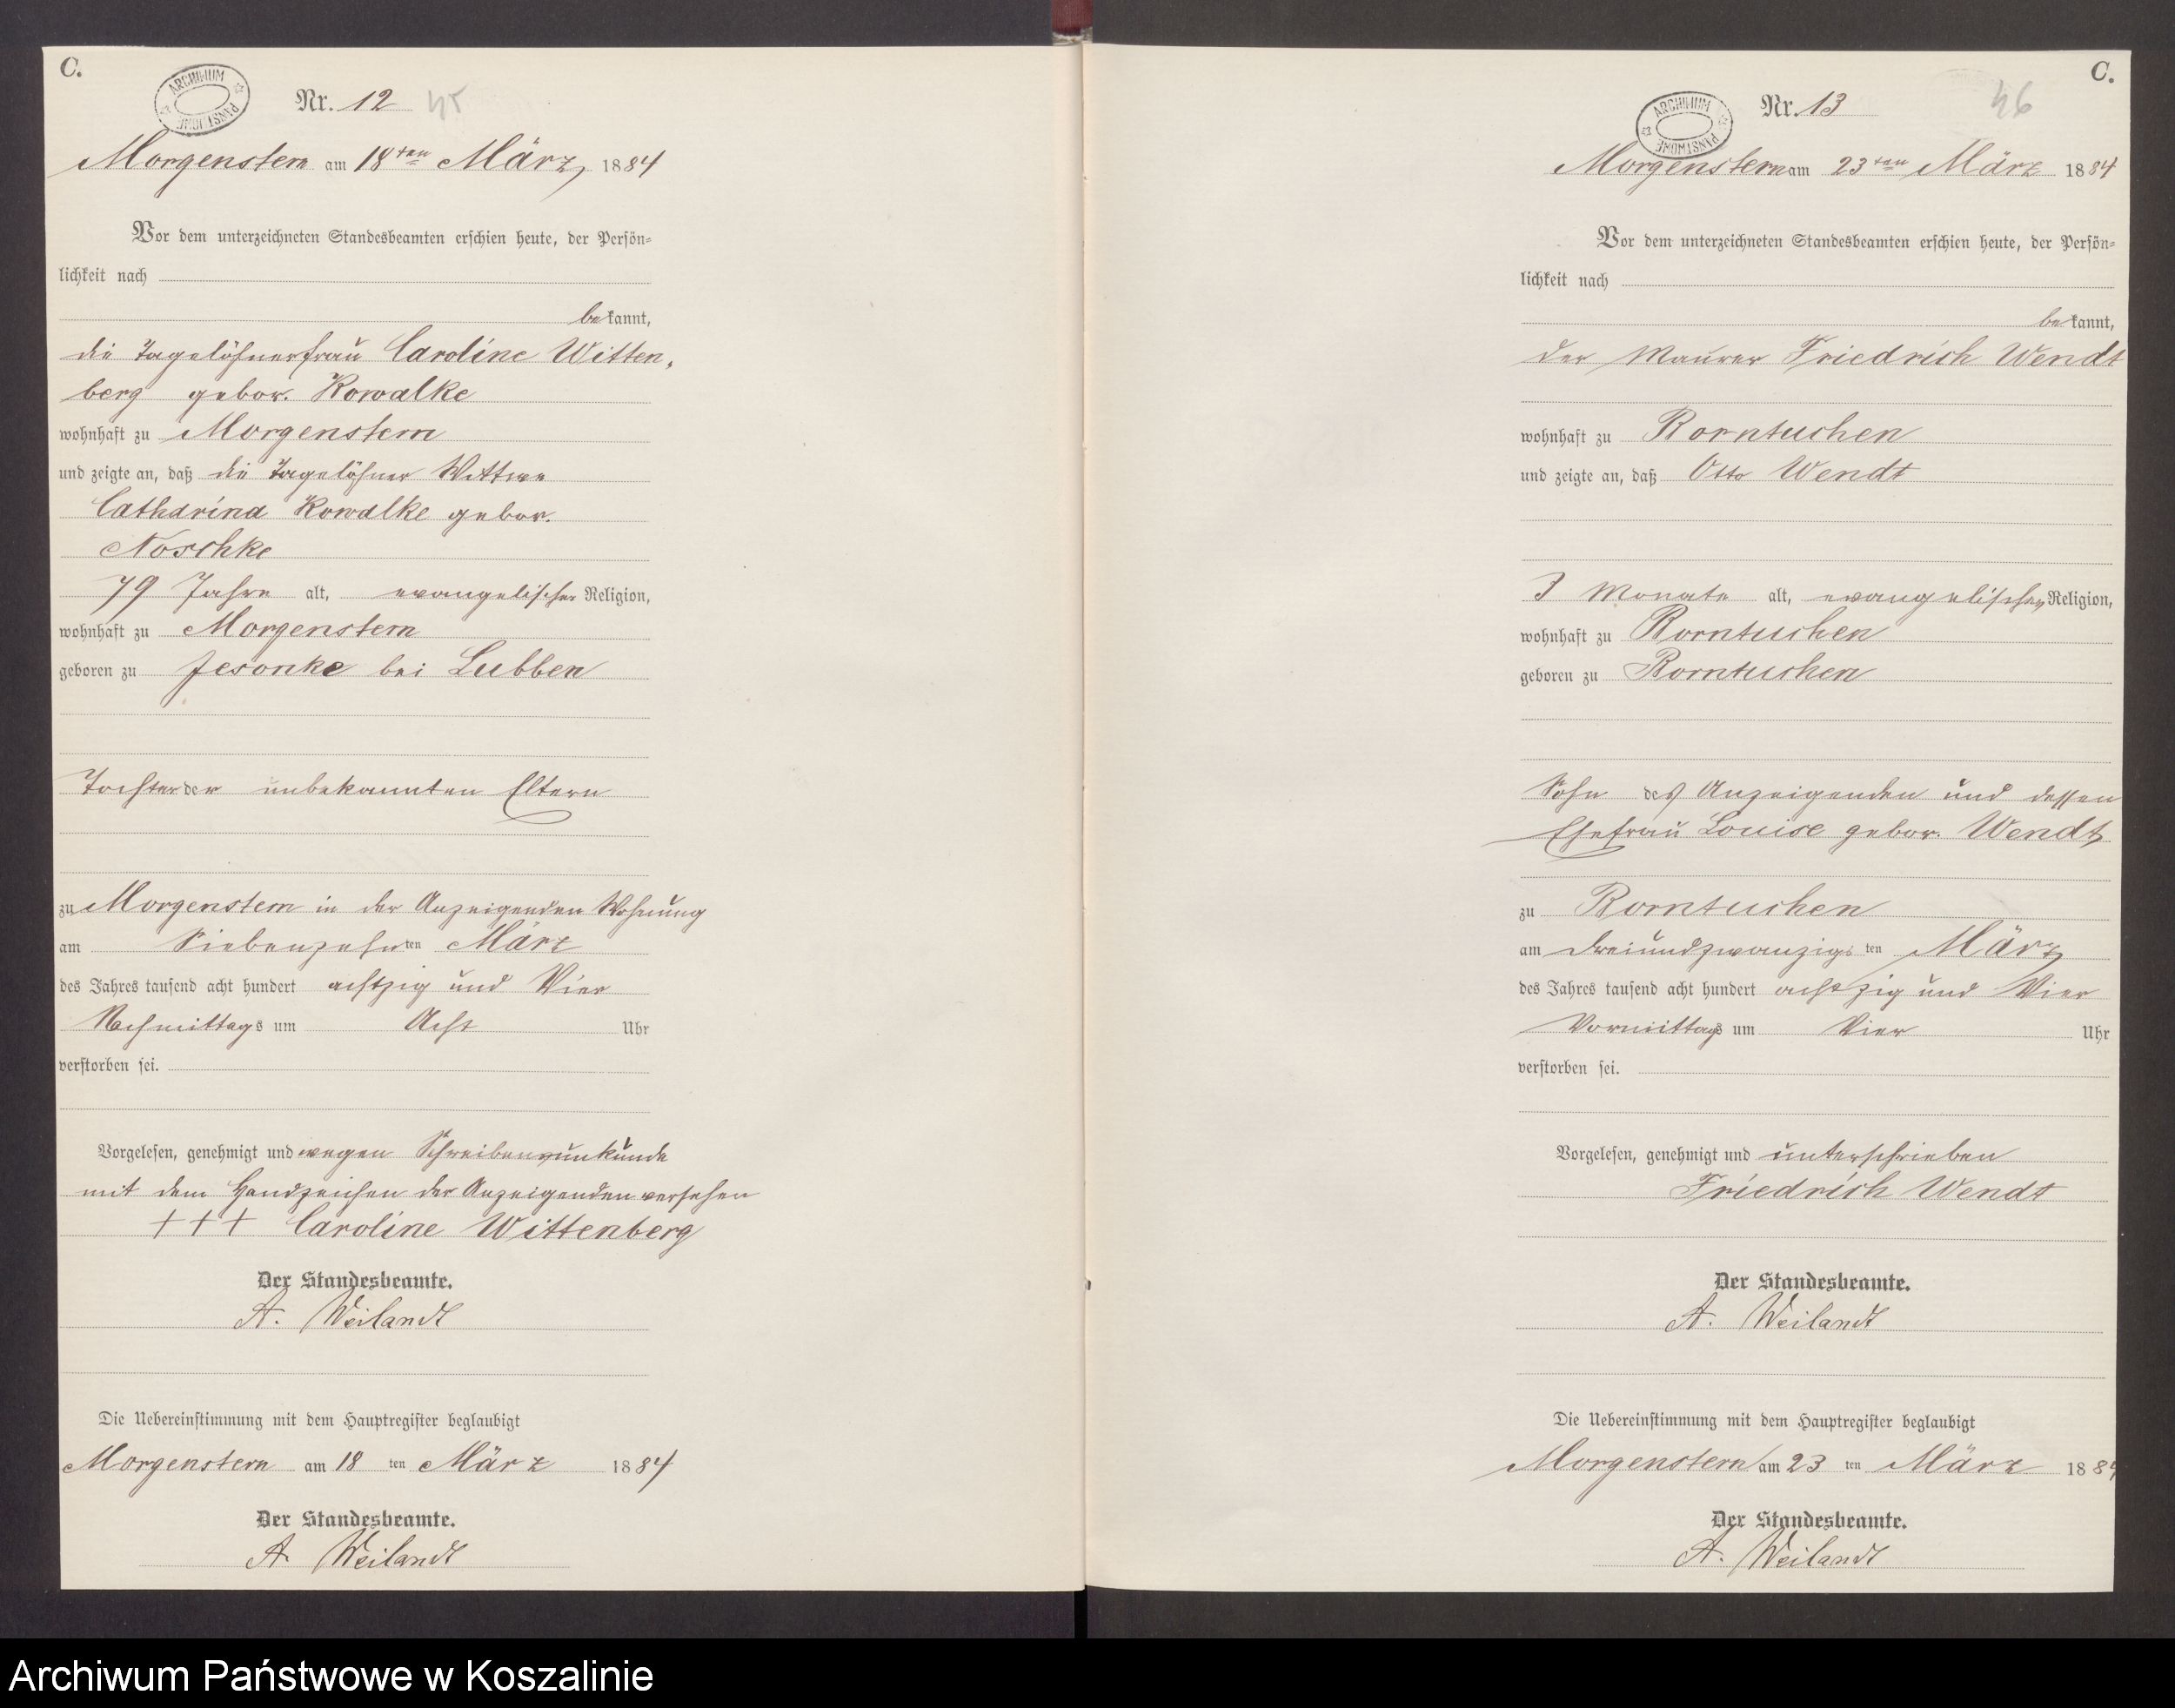 C.
ARCHIWUM PAŃSTWOWE
Nr. 12 45
Morgenstern am 18ten März 1884
Vor dem unterzeichneten Standesbeamten erschien heute, der Persön=
lichkeit nach
bekannt,
die Tagelöhnerfrau Caroline Witten,
berg gebor. Kowalke
wohnhaft zu Morgenstern
und zeigte an, daß die Tagelöhner Wittwe
Catharina Kowalke gebor.
Noschke
79 Jahre alt, evangelischer Religion,
wohnhaft zu Morgenstern
geboren zu Jesonke bei Lubben
Tochter der unbekannten Eltern
zu Morgenstern in der Anzeigenden Wohnung
am Siebenzehnten März
des Jahres tausend acht hundert achtzig und Vier
Nachmittags um Acht Uhr
verstorben sei.
Vorgelesen, genehmigt und wegen Schreibensunkunde
mit dem Handzeichen der Anzeigenden versehen
+++ Caroline Wittenberg
Der Standesbeamte.
A. Weilandt
Die Uebereinstimmung mit dem Hauptregister beglaubigt
Morgenstern am 18 ten März 1884
Der Standesbeamte.
A. Weilandt
C.
ARCHIWUM PAŃSTWOWE
Nr. 13 46
Morgenstern am 23ten März 1884
Vor dem unterzeichneten Standesbeamten erschien heute, der Persön=
lichkeit nach
bekannt,
der Maurer Friedrich Wendt
wohnhaft zu Borntuchen
und zeigte an, daß Otto Wendt
3 Monate alt, evangelischer Religion,
wohnhaft zu Borntuchen
geboren zu Borntuchen
Sohn des Anzeigenden und dessen
Ehefrau Louise gebor. Wendt
zu Borntuchen
am Dreiundzwanzigsten März
des Jahres tausend acht hundert achtzig und Vier
Vormittags um Vier Uhr
verstorben sei.
Vorgelesen, genehmigt und unterschrieben
Friedrich Wendt
Der Standesbeamte.
A. Weilandt
Die Uebereinstimmung mit dem Hauptregister beglaubigt
Morgenstern am 23 ten März 1884
Der Standesbeamte.
A. Weilandt
Archiwum Państwowe w Koszalinie